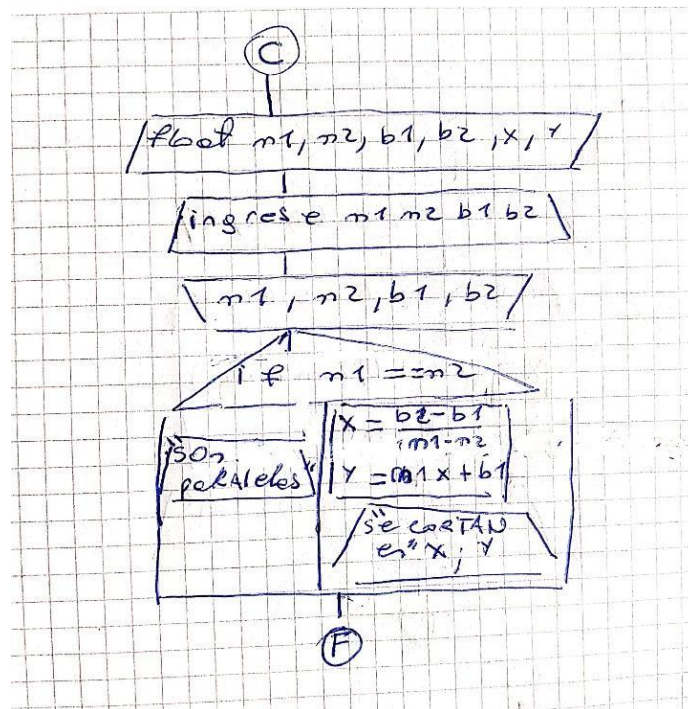 C
float m1, m2, b1, b2, x, y
ingrese m1 m2 b1 b2
m1, m2, b1, b2
if m1 == m2
"son
paralelas"
x = b2-b1
m1-m2
y = m1x+b1
"se cortan
en" x; y
F